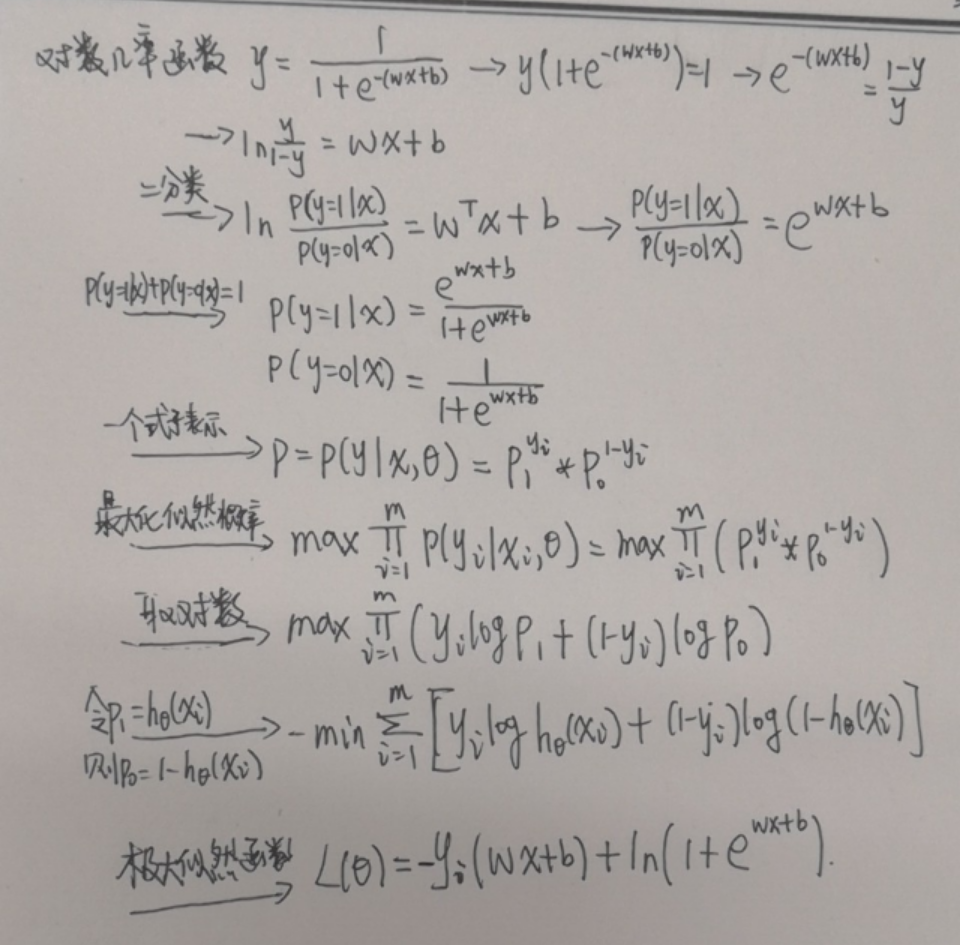 对数几率函数 y = 1/(1+e^{-(wx+b)}) → y(1+e^{-(wx+b)})=1 → e^{-(wx+b)} = (1-y)/y
→ ln y/(1-y) = wx+b
二分类 → ln P(y=1|x)/P(y=0|x) = w^T x + b → P(y=1|x)/P(y=0|x) = e^{wx+b}
P(y=1|x)+P(y=0|x)=1 → P(y=1|x) = e^{wx+b}/(1+e^{wx+b})
P(y=0|x) = 1/(1+e^{wx+b})
一个式子表示 → P = P(y|x,θ) = P₁^{y_i} * P₀^{1-y_i}
最大化似然概率 → max ∏_{i=1}^{m} P(y_i|x_i,θ) = max ∏_{i=1}^{m} (P₁^{y_i} * P₀^{1-y_i})
取对数 → max ∏_{i=1}^{m} (y_i log P₁ + (1-y_i) log P₀)
令P₁=h_θ(x_i) → -min ∑_{i=1}^{m} [y_i log h_θ(x_i) + (1-y_i) log(1-h_θ(x_i)]
则P₀=1-h_θ(x_i)
极大似然函数 → L(θ) = -y_i(wx+b) + ln(1+e^{wx+b}).